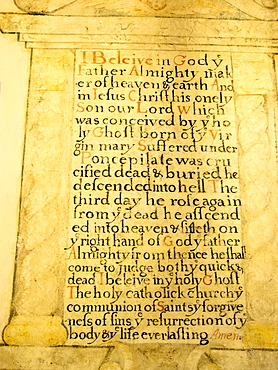 I Beleive in God yͤ
Father Almighty mak
er of heaven & earth And
in Iesus Christ his onely
Son our Lord Which
was conceived by yͤ ho
ly Ghost born of yͤ Vir
gin mary Suffered under
Poncepilate was cru
cified dead & buried he
descended into hell The
third day he rose again
from yͤ dead he ascend
ed into heaven & sitteth on
yͤ right hand of God yͤ father
Almighty from thence he shall
come to judge both yͤ quick &
dead I beleive in yͤ holy Ghost
The holy catholick church yͤ
communion of Saints yͤ forgive
ness of sins yͤ resurrection of yͤ
body & yͤ life everlasting Amen.